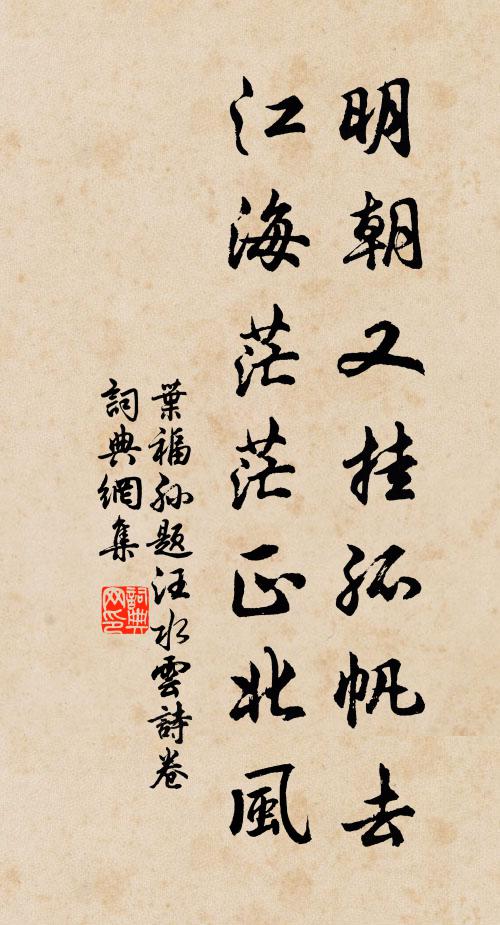 明朝又挂孤帆去
江海茫茫正北風
葉福孫題汪水雲詩卷
詞典網集
詞典網印